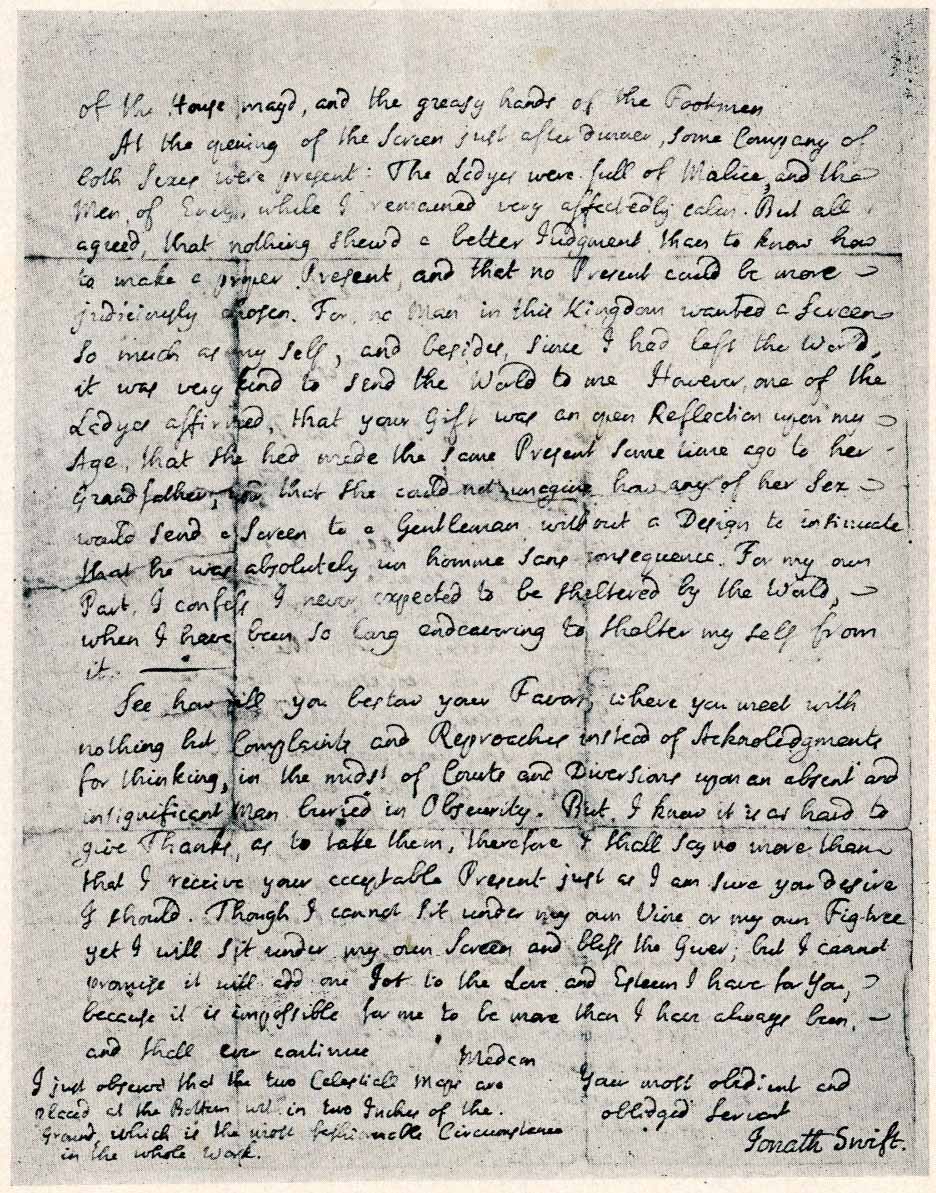 of the House mayd, and the greasy hands of the Footmen
At the opening of the Screen just after dinner, some Company of
both Sexes were present: The Ladyes were full of Malice, and the
Men of Envy, while I remained very affectedly calm. But all
agreed, that nothing shew'd a better Judgment than to know how
to make a proper Present, and that no Present could be more
judiciously chosen. For, no Man in this Kingdom wanted a Screen
so much as my self, and besides, since I had left the World,
it was very kind to send the World to me However, one of the
Ladyes affirmed, that your Gift was an open Reflection upon my
Age, that she had made the same Present some time ago to her
Grandfather, that she could not imagine how any of her Sex
would send a Screen to a Gentleman without a Design to insinuate
that he was absolutely un homme sans consequence. For my own
Part, I confess I never expected to be sheltered by the World,
when I have been so long endeavoring to shelter my self from
it.
See how ill you bestow your Favors, where you meet with
nothing but Complaints and Reproaches instead of Acknoledgments
for thinking, in the midst of Courts and Diversions upon an absent and
insignificant Man buried in Obscurity. But, I know it is as hard to
give Thanks, as to take them, therefore I shall say no more than
that I receive your acceptable Present just as I am sure you desire
I should. Though I cannot sit under my own Vine or my own Fig-tree
yet I will sit under my own Screen and bless the Giver; but I cannot
promise it will add one Jot to the Love and Esteem I have for You,
because it is impossible for me to be more than I have always been,
and shall ever continue
Madam
Your most obedient and
obliedged Servant
Jonath Swift.
I just observd that the two Celestiall Maps are
placed at the Bottom within two Inches of the
Ground, which is the most fashionable Circumstance
in the whole Work.